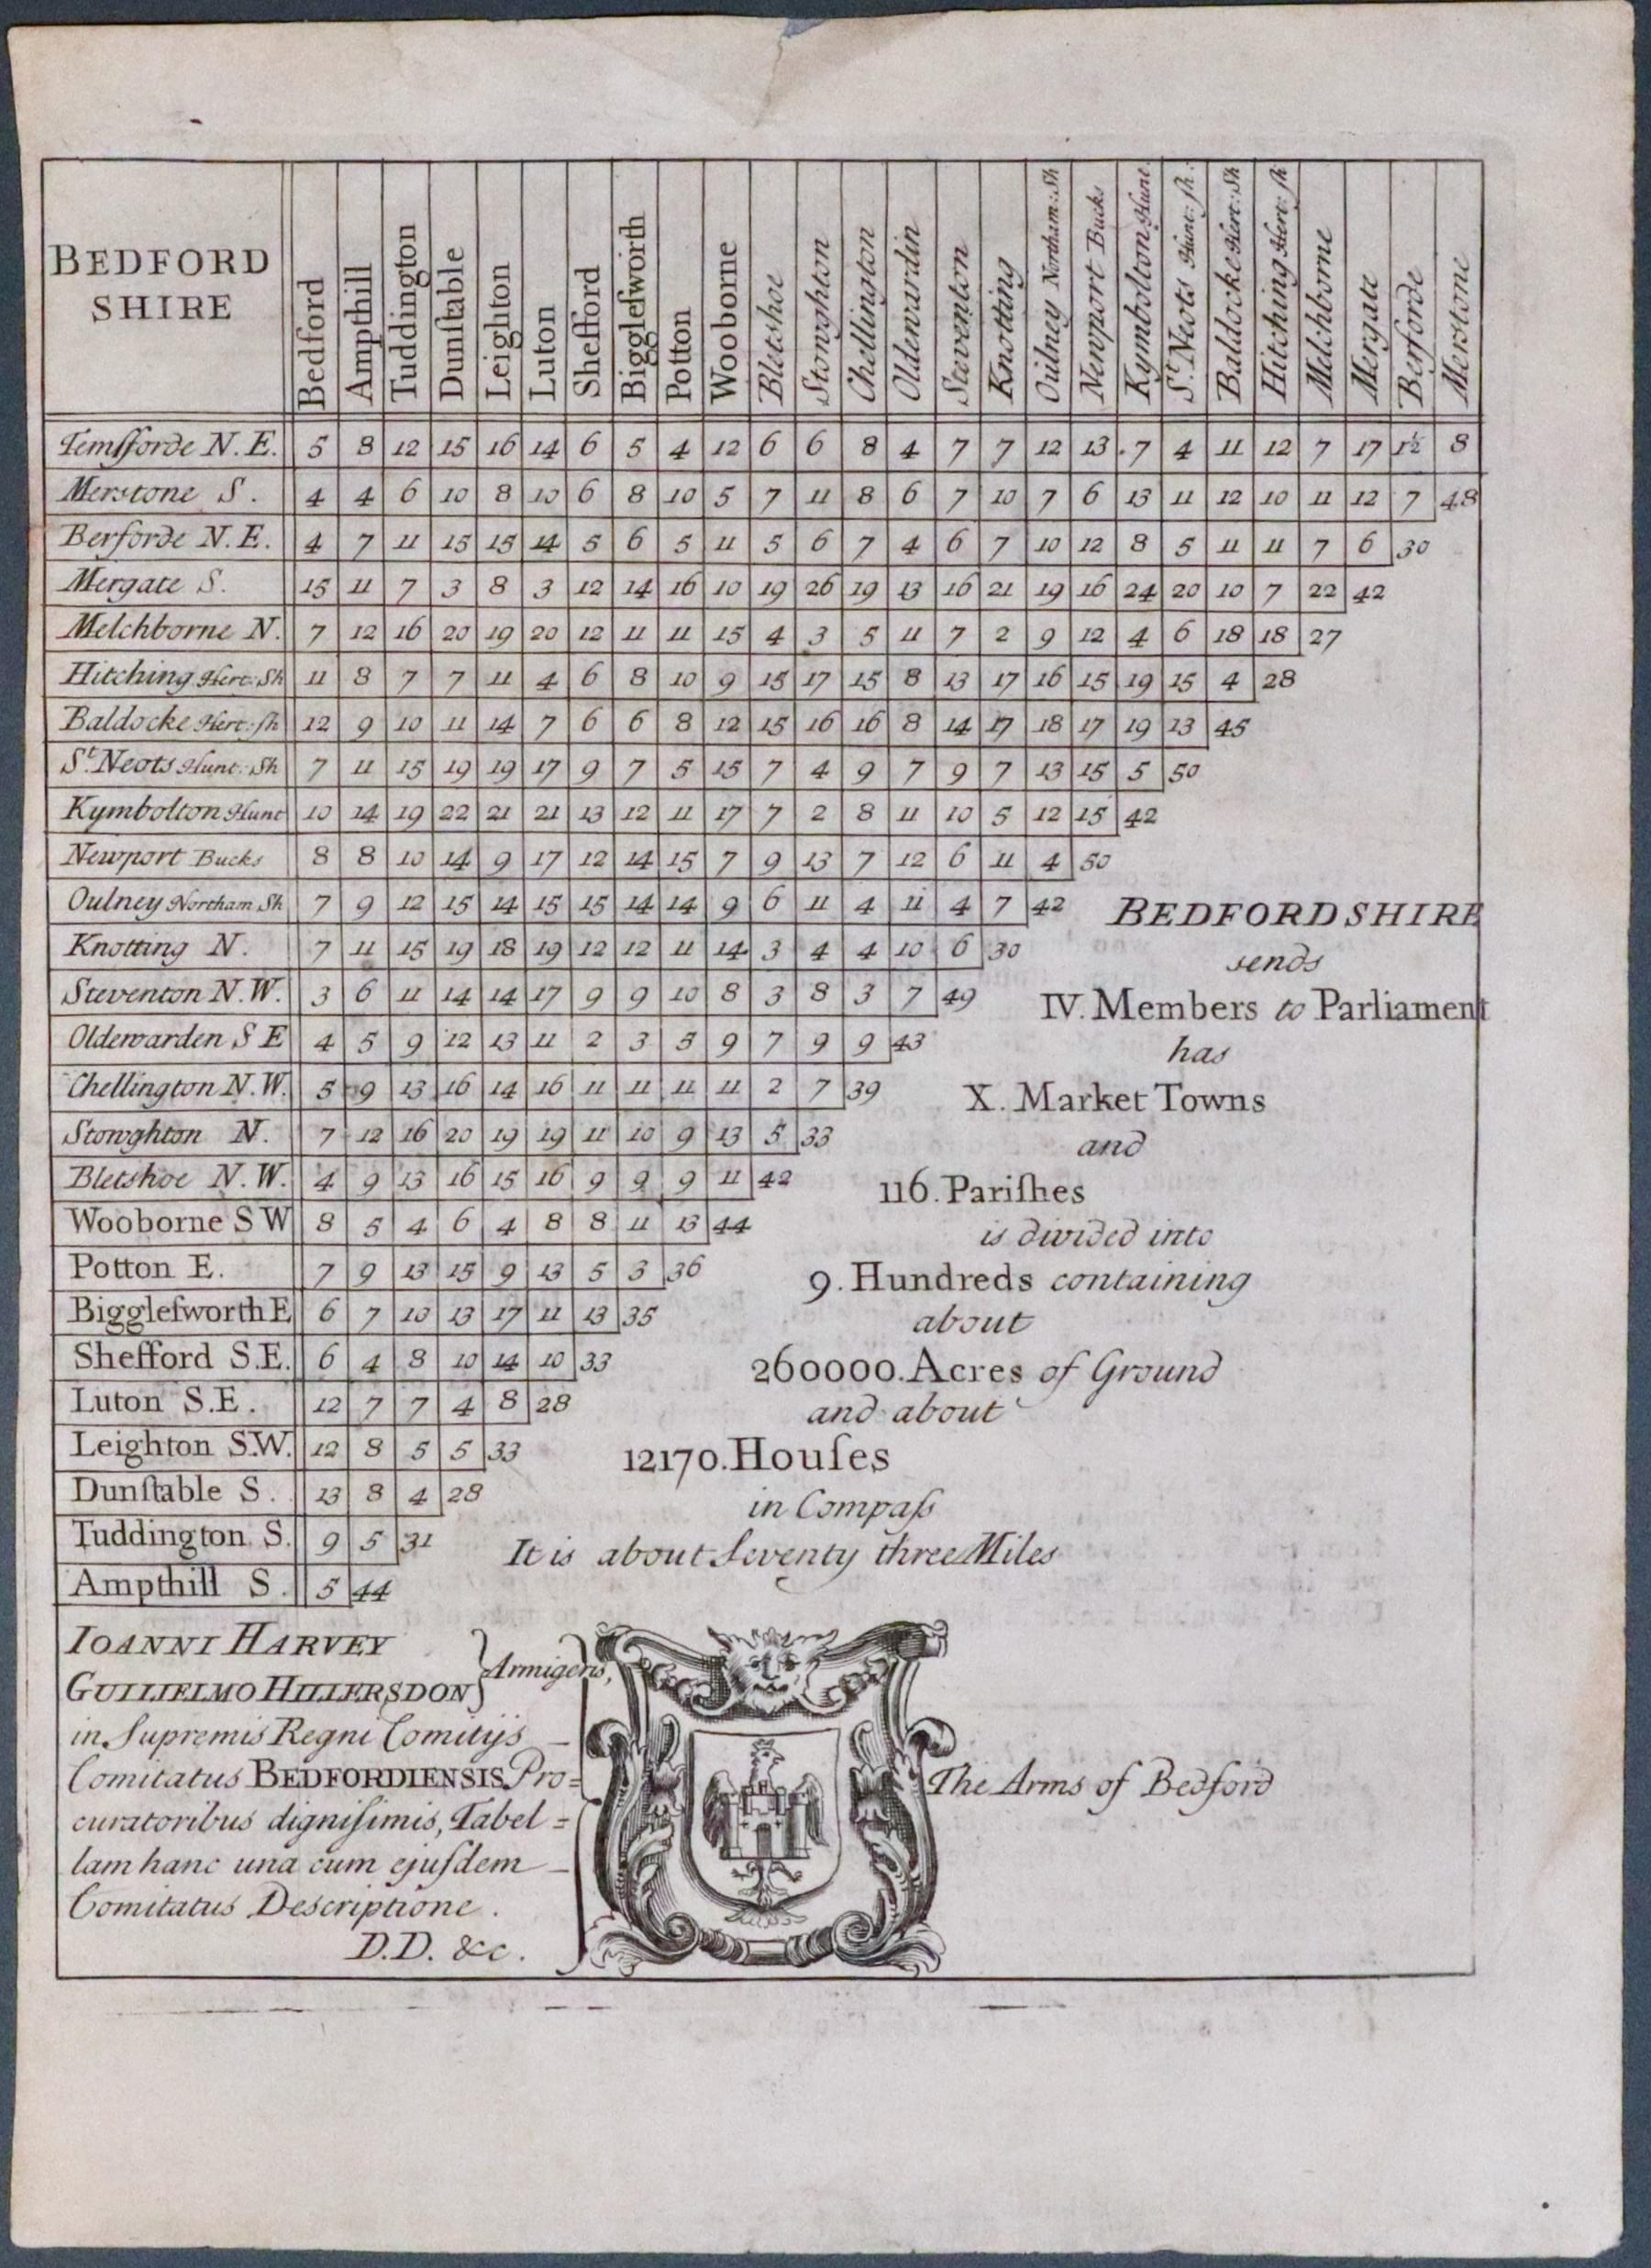 BEDFORD
SHIRE
Bedford
Ampthill
Tuddington
Dunſtable
Leighton
Luton
Shefford
Biggleſworth
Potton
Wooborne
Bletshoe
Stowghton
Chellington
Oldewardin
Steventon
Knotting
Oulney Northam: Sh
Newport Bucks
Kymbolton Hunt
St Neots Hunt: ſh:
Baldocke Hert: Sh
Hitching Hert: ſh
Melchborne
Mergate
Berforde
Merstone
Temsforde N.E. 5 8 12 15 16 14 6 5 4 12 6 6 8 4 7 7 12 13 7 4 11 12 7 17 1½ 8
Merstone S. 4 4 6 10 8 10 6 8 10 5 7 11 8 6 7 10 7 6 13 11 12 10 11 12 7 48
Berforde N.E. 4 7 11 15 15 14 5 6 5 11 5 6 7 4 6 7 10 12 8 5 11 11 7 6 30
Mergate S. 15 11 7 3 8 3 12 14 16 10 19 26 19 13 16 21 19 16 24 20 10 7 22 42
Melchborne N. 7 12 16 20 19 20 12 11 11 15 4 3 5 11 7 2 9 12 4 6 18 18 27
Hitching Hert: Sh 11 8 7 7 11 4 6 8 10 9 15 17 15 8 13 17 16 15 19 15 4 28
Baldocke Hert: ſh 12 9 10 11 14 7 6 6 8 12 15 16 16 8 14 17 18 17 19 13 45
St Neots Hunt: Sh 7 11 15 19 19 17 9 7 5 15 7 4 9 7 9 7 13 15 5 50
Kymbolton Hunt 10 14 19 22 21 21 13 12 11 17 7 2 8 11 10 5 12 15 42
Newport Bucks 8 8 10 14 9 17 12 14 15 7 9 13 7 12 6 11 4 50
Oulney Northam Sh 7 9 12 15 14 15 15 14 14 9 6 11 4 11 4 7 42
Knotting N. 7 11 15 19 18 19 12 12 11 14 3 4 4 10 6 30
Steventon N.W. 3 6 11 14 14 17 9 9 10 8 3 8 3 7 49
Oldewarden S E 4 5 9 12 13 11 2 3 5 9 7 9 9 43
Chellington N.W. 5 9 13 16 14 16 11 11 11 11 2 7 39
Stowghton N. 7 12 16 20 19 19 11 10 9 13 5 33
Bletshoe N.W. 4 9 13 16 15 16 9 9 9 11 42
Wooborne S W 8 5 4 6 4 8 8 11 13 44
Potton E. 7 9 13 15 9 13 5 3 36
Biggleſworth E 6 7 10 13 17 11 13 35
Shefford S.E. 6 4 8 10 14 10 33
Luton S.E. 12 7 7 4 8 28
Leighton S.W. 12 8 5 5 33
Dunſtable S. 13 8 4 28
Tuddington S. 9 5 31
Ampthill S. 5 44
BEDFORDSHIRE
sends
IV. Members to Parliament
has
X. Market Towns
and
116. Pariſhes
is divided into
9. Hundreds containing
about
260000. Acres of Ground
and about
12170. Houſes
in Compaſs
It is about Seventy three Miles
IOANNI HARVEY
GUILIELMO HILLERSDON } Armigeris,
in Supremis Regni Comitijs
Comitatus BEDFORDIENSIS Pro=
curatoribus digniſimis, Tabel=
lam hanc una cum ejuſdem
Comitatus Descriptione.
D.D. &c.
The Arms of Bedford